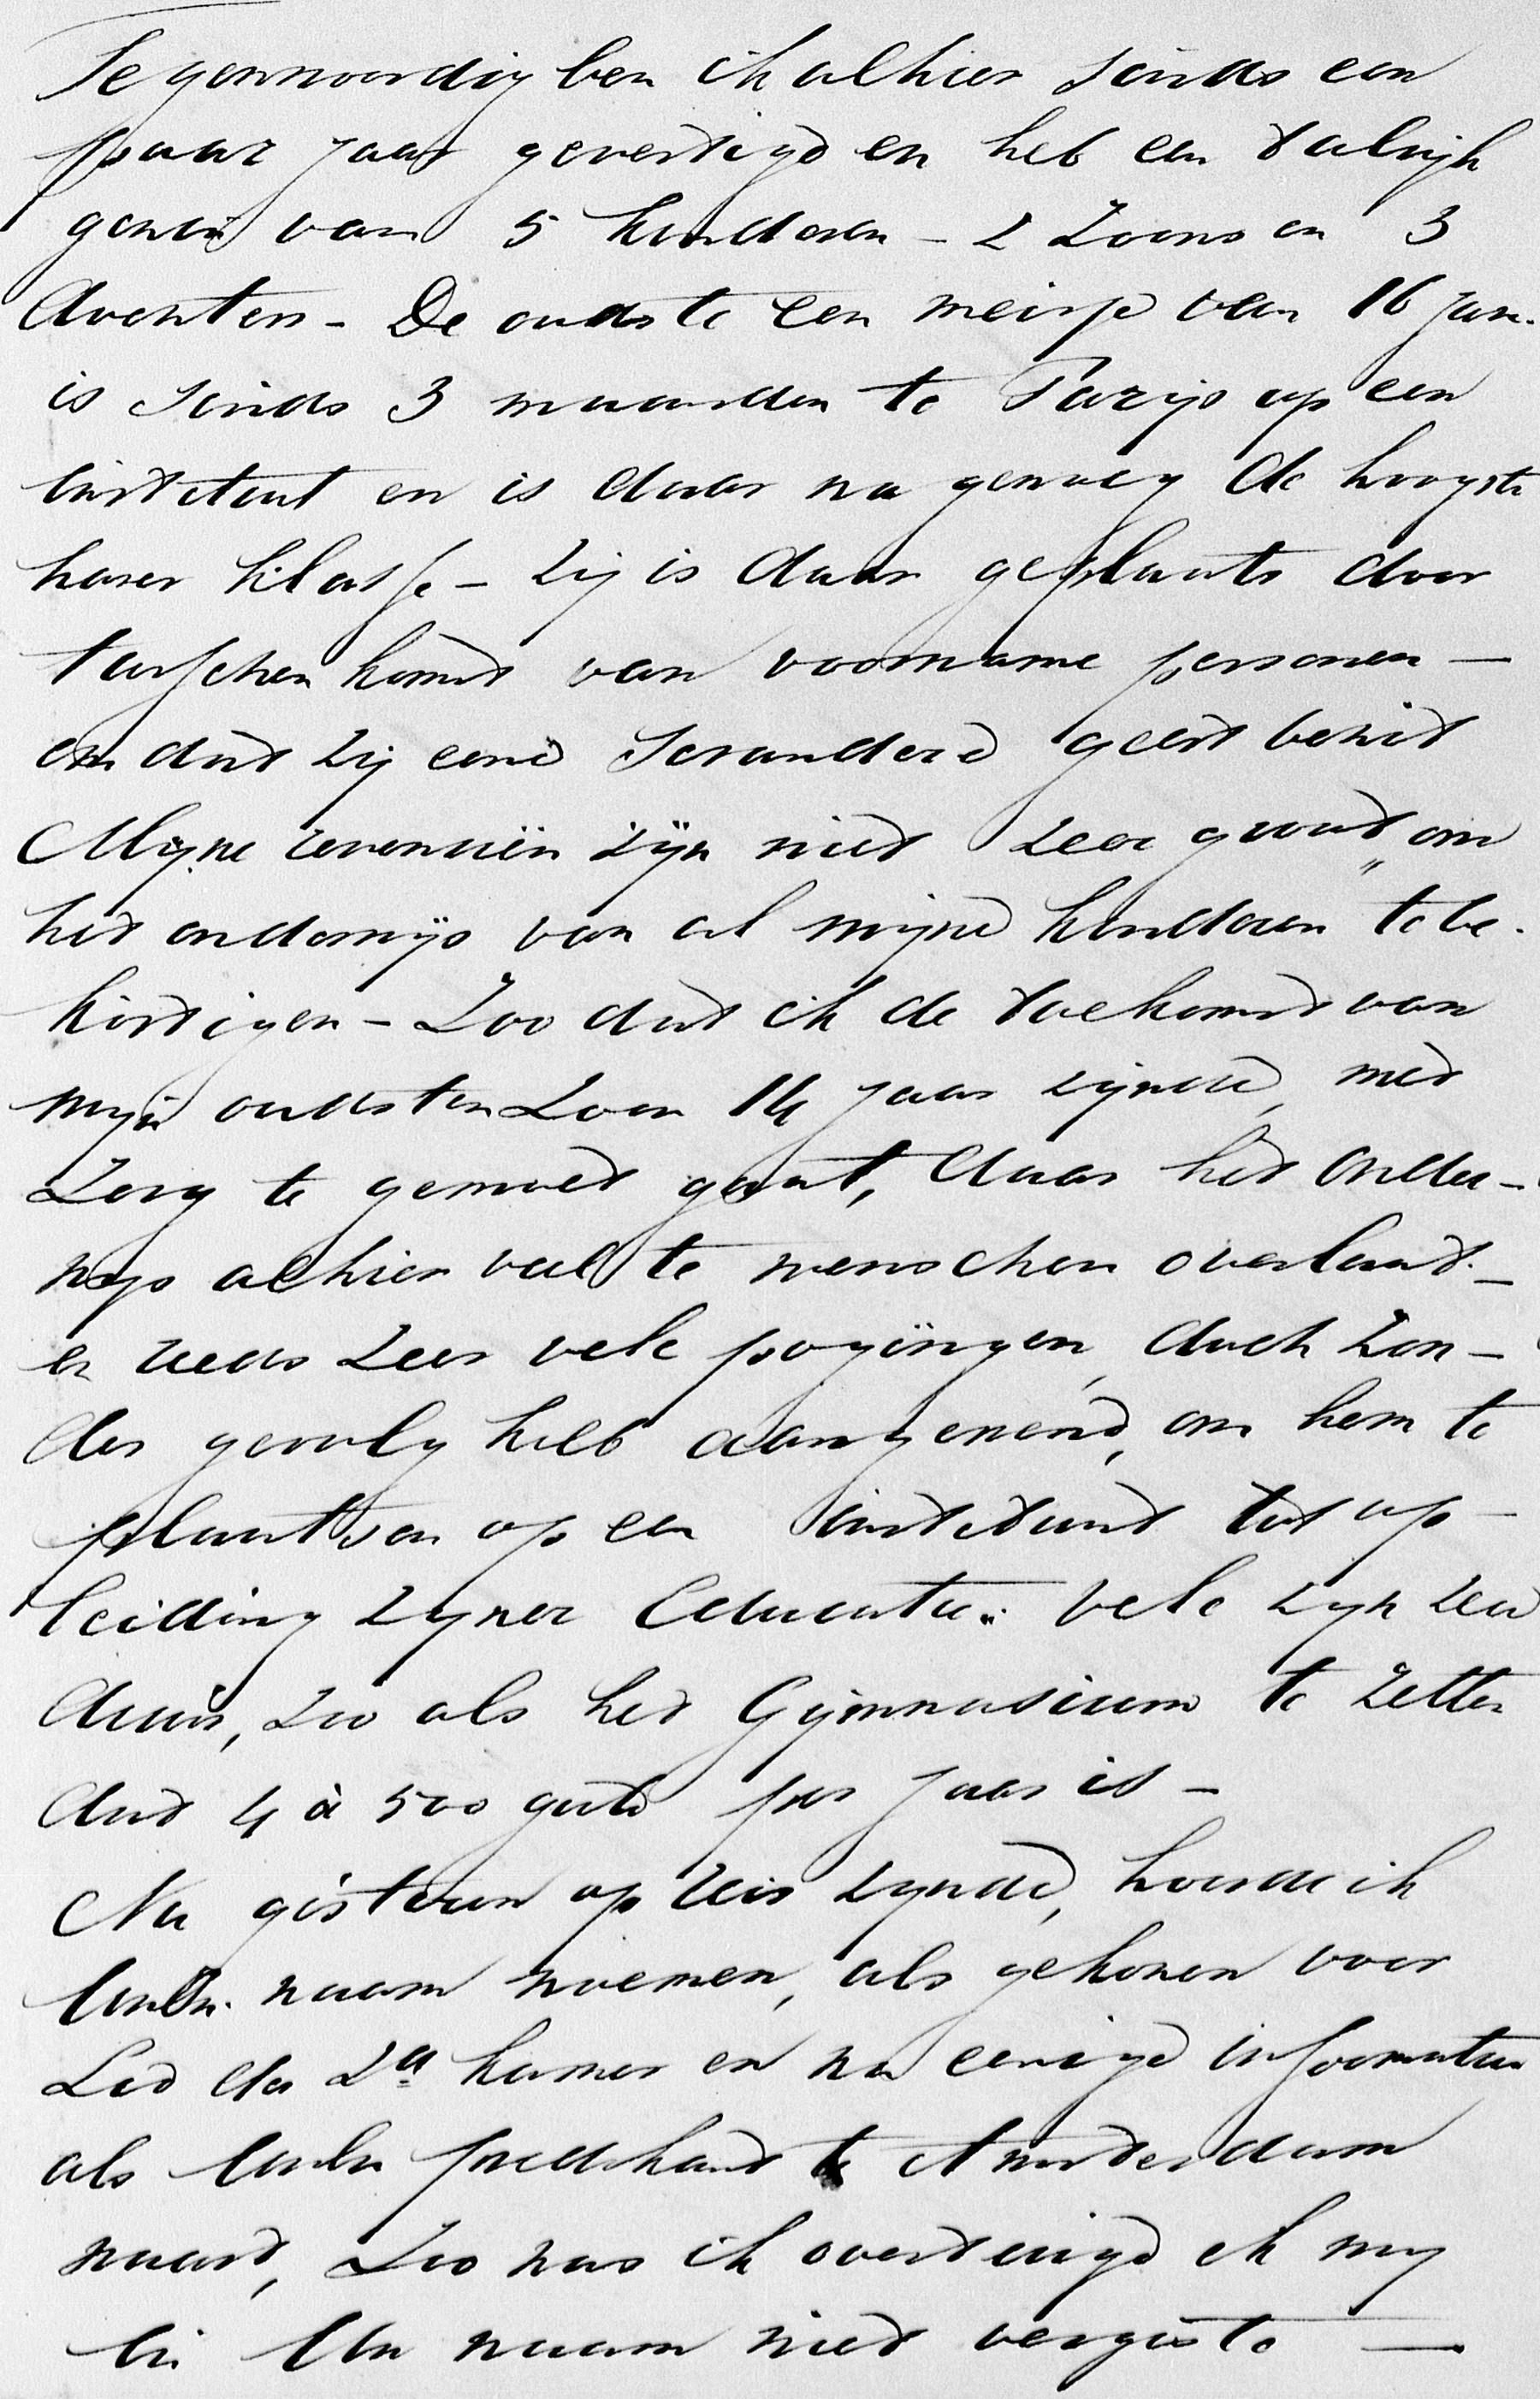 Tegenwoordig ben ik alhier sinds een
paar jaar gevestigd en heb een talrijk
gezin van 5 kinderen – 2 Zoons en 3
dochters – De oudste een meisje van 16 jare.
is sinds 3 maanden te Parijs op een
institut en is daar na genoeg de hoogste
harer klasse – Zij is daar geplaats door
tusschen komst van voorname personen –
en dat zij eene schrandere geest bezit
Mijne revenuën zijn niet zeer groot „ om
het onderwijs van al mijne kinderen te be-
kostigen – Zoo dat ik de toekomst van
mijn oudsten Zoon 14 jaar zijnde, met
Zorg te gemoet gaat, daar het onder-
wijs alhier veel te wenschen overlaat –
en reeds Zeer vele pogingen, doch Zon-
der gevolg heb aangewend, om hem te
plaatsen op een instituut tot op-
leiding zijner Educatie. Vele zijn zeer
duur, zoo als het Gijmnasium te Zetten
dat 4 à 500 guld per jaar is –
Nu gisteren op reis zijnde, hoorde ik
naam noemen, als gekozen voor
Lid der 2de kamer en na eenige informatien
als predikant te Amsterdam
waart, Zoo was ik overtuigd ik mij
in Uw naam niet vergiste –